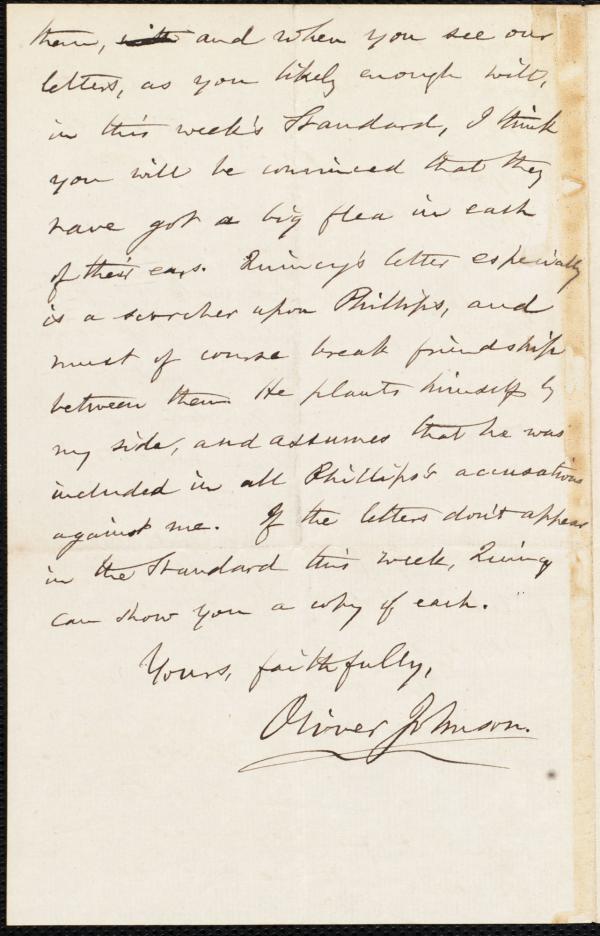 them, and when you see our
letters, as you likely enough will,
in this week's Standard, I think
you will be convinced that they
have got a big flea in each
of their ears. Quincy's letter especially
is a scorcher upon Phillips, and
must of course break friendship
between them. He plants himself by
my side, and assumes that he was
included in all Phillips's accusations
against me. If the letters don't appear
in the Standard this week, Quincy
can show you a copy of each.
Yours, faithfully,
Oliver Johnson.